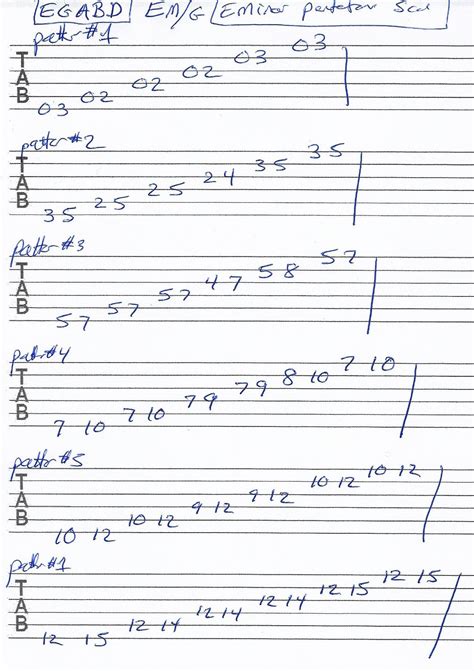 EGABD Em/G Eminor pentaton Scal
patter #1
TAB
03 02 02 02 03 03
patter #2
TAB
35 25 25 24 35 35
patter #3
TAB
57 57 57 47 58 57
patter #4
TAB
7 10 7 10 79 79 8 10 7 10
patter #5
TAB
10 12 10 12 9 12 9 12 10 12 10 12
patter #1
TAB
12 15 12 14 12 14 12 14 12 15 12 15